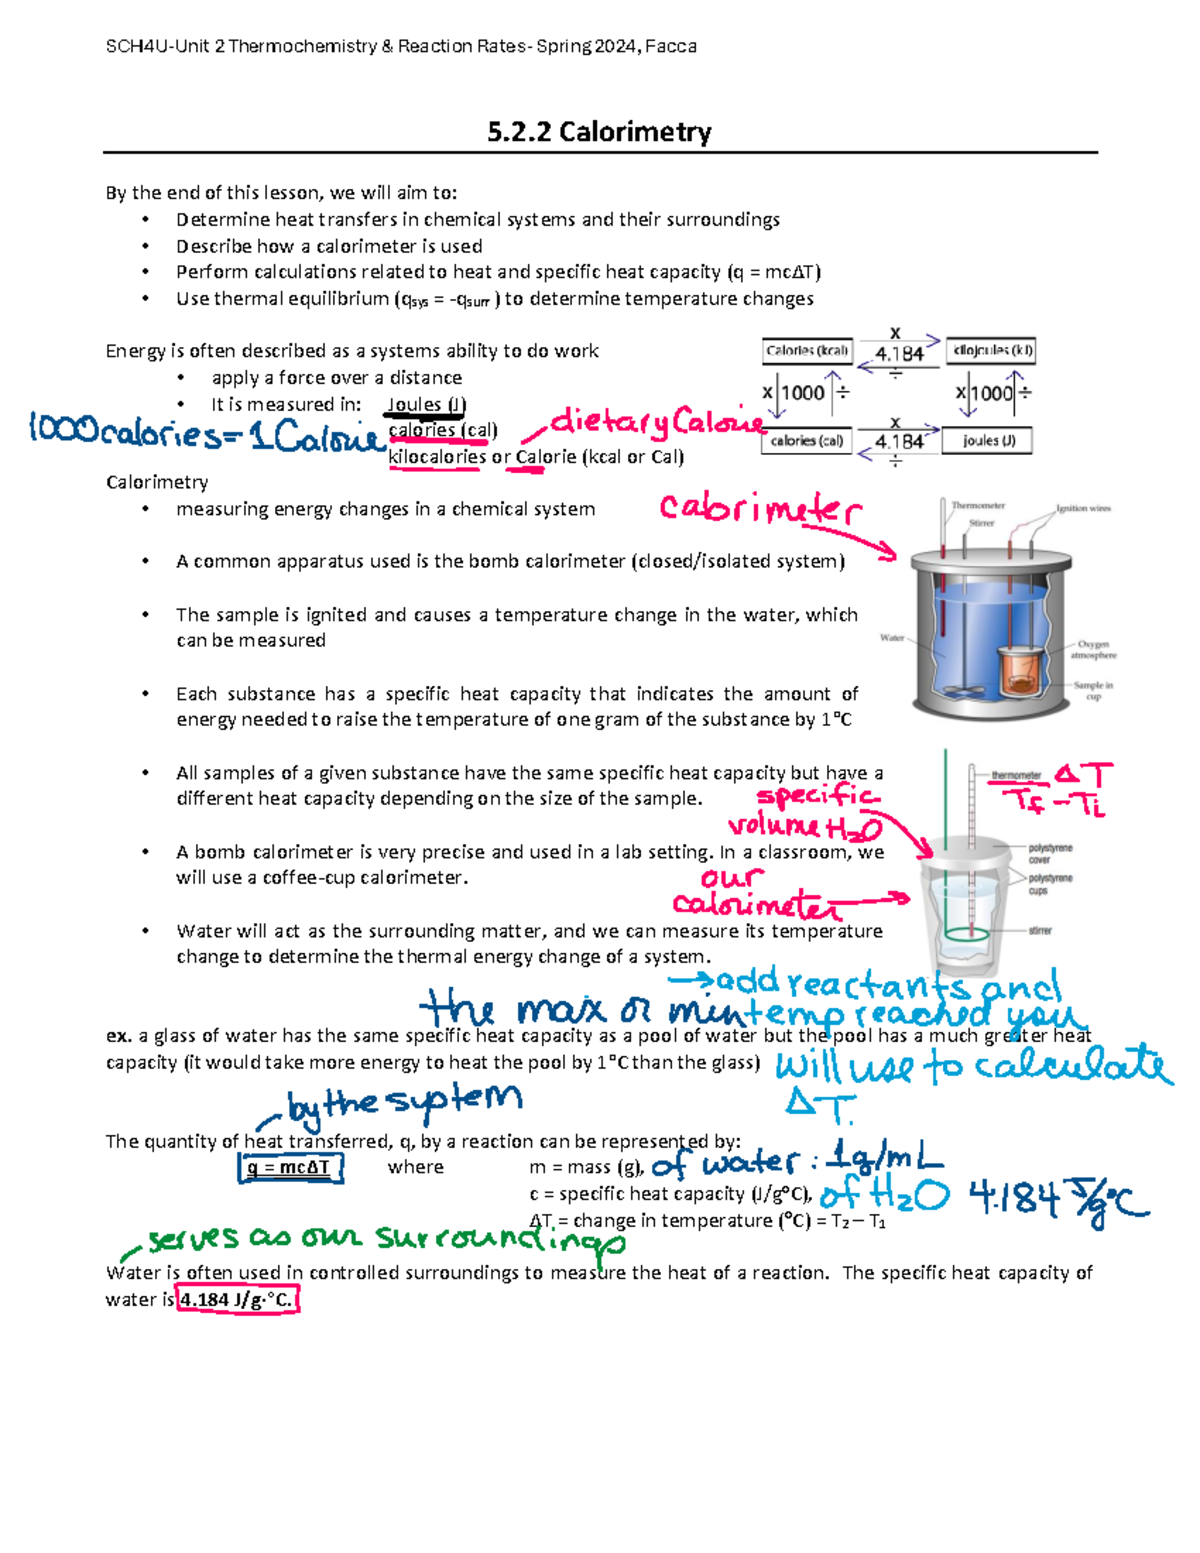 SCH4U-Unit 2 Thermochemistry & Reaction Rates- Spring 2024, Facca
5.2.2 Calorimetry
By the end of this lesson, we will aim to:
• Determine heat transfers in chemical systems and their surroundings
• Describe how a calorimeter is used
• Perform calculations related to heat and specific heat capacity (q = mcΔT)
• Use thermal equilibrium (qsys = -qsurr ) to determine temperature changes
Energy is often described as a systems ability to do work
• apply a force over a distance
• It is measured in: Joules (J)
calories (cal)
kilocalories or Calorie (kcal or Cal)
1000 calories = 1 Calorie
dietary Calorie
Calories (kcal) x 4.184 ÷ kilojoules (kJ)
x 1000 ÷ x 1000 ÷
calories (cal) x 4.184 ÷ joules (J)
Calorimetry
• measuring energy changes in a chemical system
• A common apparatus used is the bomb calorimeter (closed/isolated system)
• The sample is ignited and causes a temperature change in the water, which
can be measured
• Each substance has a specific heat capacity that indicates the amount of
energy needed to raise the temperature of one gram of the substance by 1°C
• All samples of a given substance have the same specific heat capacity but have a
different heat capacity depending on the size of the sample.
• A bomb calorimeter is very precise and used in a lab setting. In a classroom, we
will use a coffee-cup calorimeter.
• Water will act as the surrounding matter, and we can measure its temperature
change to determine the thermal energy change of a system.
calorimeter
Thermometer
Stirrer
Ignition wires
Water
Oxygen
atmosphere
Sample in
cup
thermometer ΔT
Tf - Ti
specific
volume H2O
our
calorimeter
polystyrene
cover
polystyrene
cups
stirrer
→ add reactants and
the max or min temp reached you
will use to calculate
ΔT.
ex. a glass of water has the same specific heat capacity as a pool of water but the pool has a much greater heat
capacity (it would take more energy to heat the pool by 1°C than the glass)
by the system
The quantity of heat transferred, q, by a reaction can be represented by:
q = mcΔT where m = mass (g), of water : 1g/mL
c = specific heat capacity (J/g°C), of H2O 4.184 J/g°C
ΔT = change in temperature (°C) = T2 – T1
serves as our surroundings
Water is often used in controlled surroundings to measure the heat of a reaction. The specific heat capacity of
water is 4.184 J/g·°C.